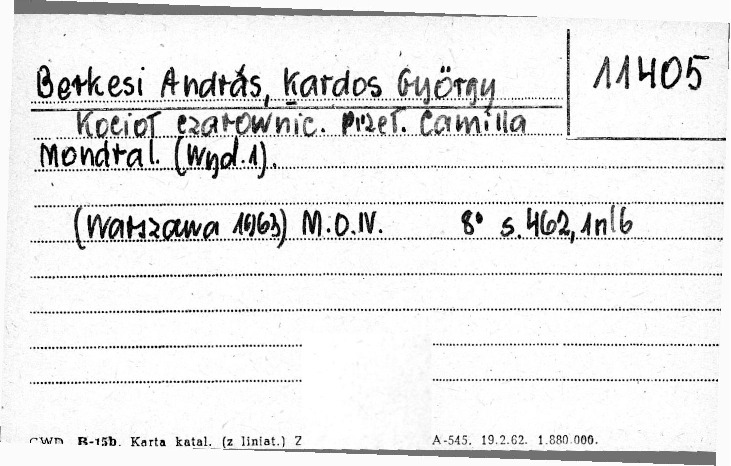 Berkesi András, Kardos György
11405
Kocioł czarownic. Przeł. Camilla
Mondral. (Wyd.1).
(Warszawa 1963) M.O.N. 8° s. 462, 1nlb
CWD R-15b. Karta katal. (z liniat.) Z
A-545. 19.2.62. 1.880.000.